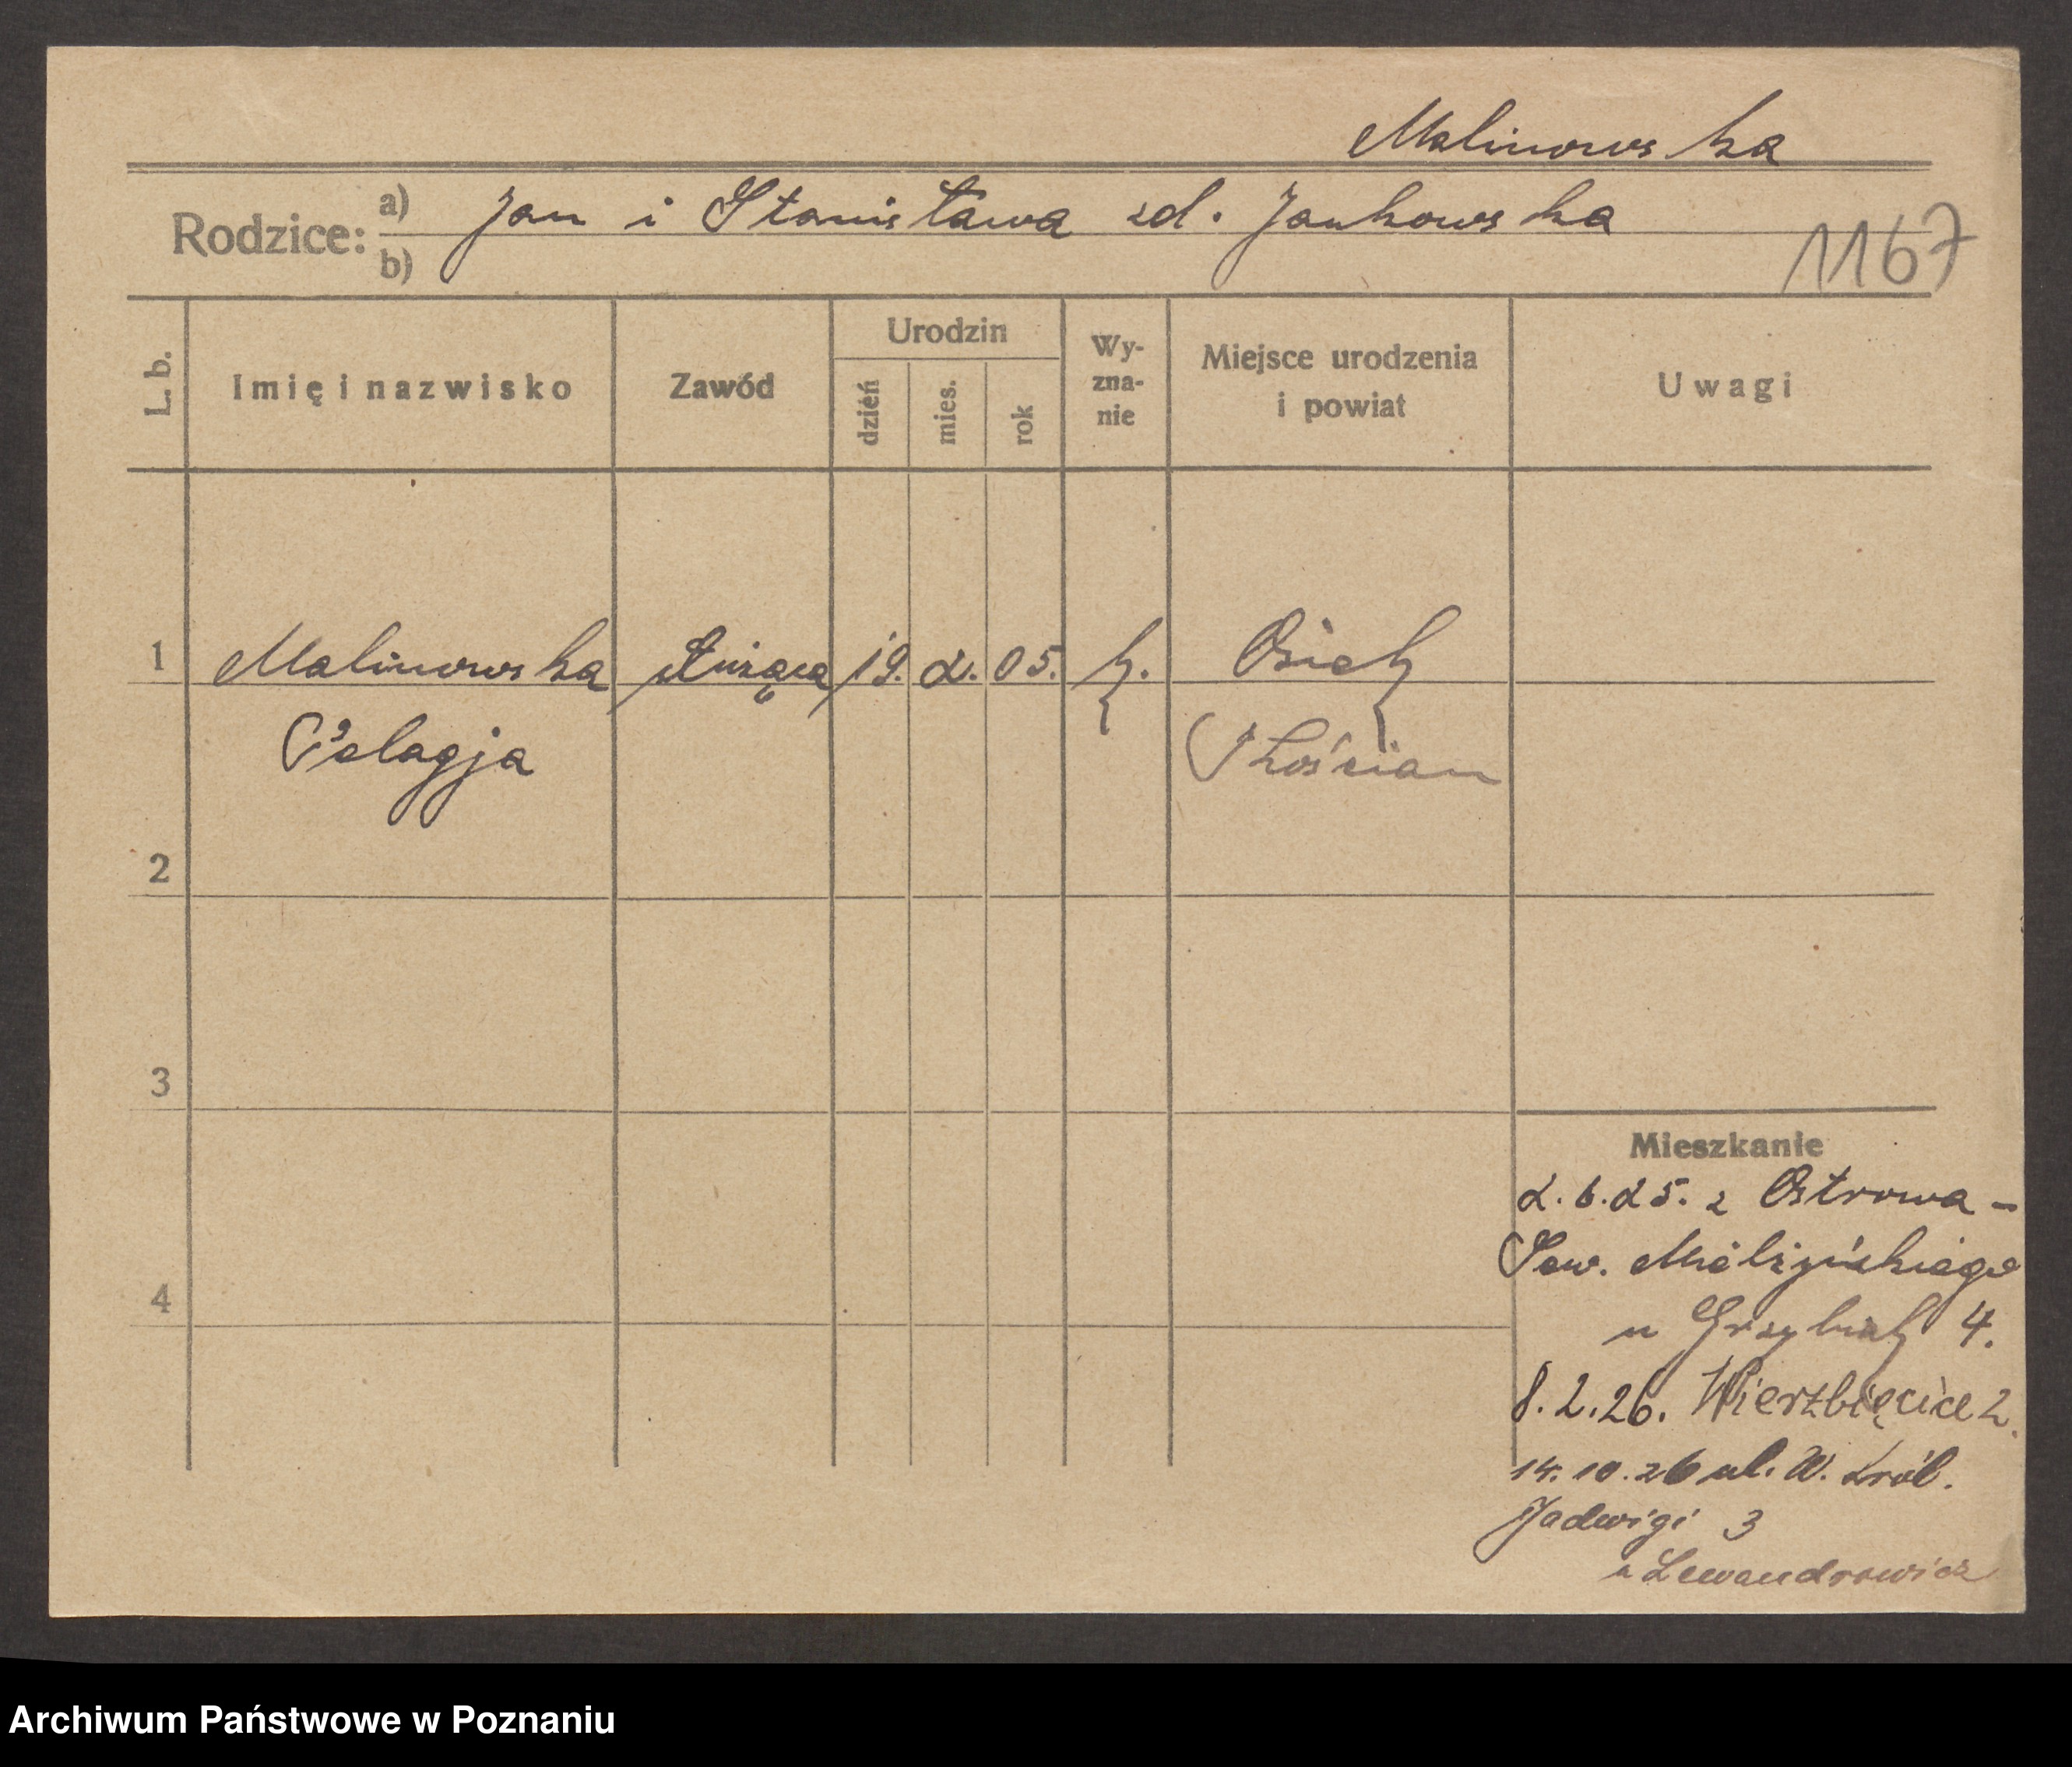 Malinowska
Rodzice: a) Jan i Stanisława zd. Jankowska
b)
1167
L. b. Imię i nazwisko Zawód Urodzin dzień mies. rok Wyznanie Miejsce urodzenia i powiat Uwagi
1 Malinowska służąca 19. 2. 05. k. Osiek
Pelagja Kościan
2
3
4
Mieszkanie
2.6.25. z Ostrowa -
Sew. Mielżyńskiego
u 4.
8.2.26. Wierzbięcice 2.
14.10.26 ul. W. Król.
Jadwigi 3
u Lewandrowicz
Archiwum Państwowe w Poznaniu